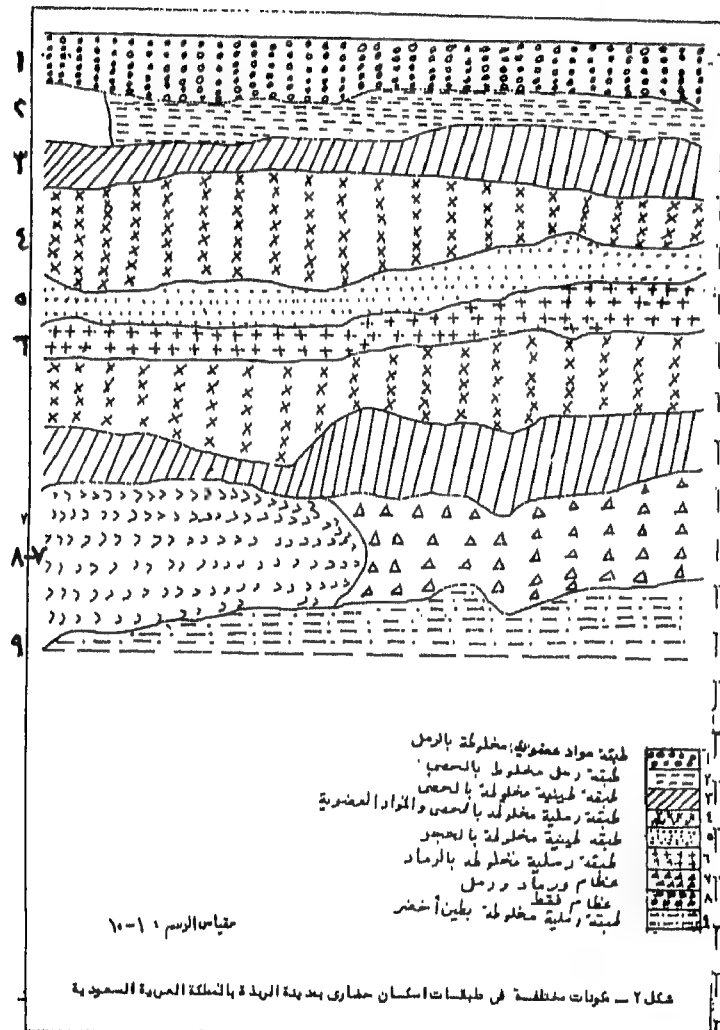 ١
٢
٣
٤
٥
٦
٨-٧
٩
طبقة مواد عضوية مخلوطة بالرمل ١
طبقة رمل مخلوط بالحصى ٢
طبقة طينية مخلوطة بالحصى ٣
طبقة رملية مخلوطة بالحصى والمواد العضوية ٤
طبقة طينية مخلوطة بالحجر ٥
طبقة رملية مخلوطة بالرماد ٦
عظام ورماد ورمل ٧
عظام فقط ٨
طبقة رملية مخلوطة بطين أخضر ٩
مقياس الرسم : ١-١٠
شكل ٢ — مكونات مختلفة في طبقات اسكان حضارى بمدينة الربذة بالمملكة العربية السعودية